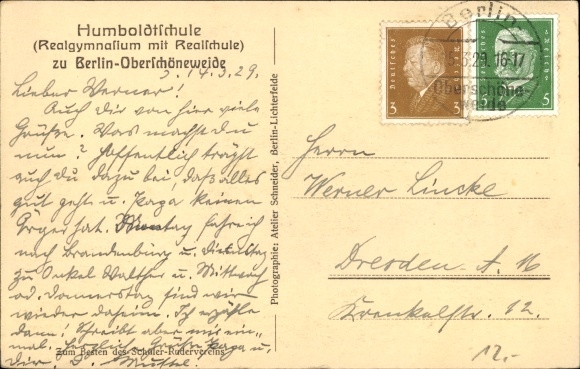 Humboldtschule
(Realgymnasium mit Realschule)
zu Berlin-Oberschöneweide
3.14.3.29.
Lieber Werner!
Auch dir von hier viele
Grüße. Was machst du
nun? Hoffentlich trägst
auch du dazu bei, daß alles
gut geht u. Papa keinen
Ärger hat. Montag fahre ich
nach Brandenburg u. Dienstag
zu Onkel Walther u. Mittwoch
od. Donnerstag sind wir
wieder daheim. Ich erzähle
dann! Schreibt aber mir ein-
mal. Herzliche Grüße Papa u.
Dir. D. Mutti.
Zum Besten des Schüler-Rudervereins
Photographie: Atelier Schneider, Berlin-Lichterfelde
Deutsches Reich
3 3
5 5
Berlin-
29.16-17
Oberschöne-
weide
Herrn
Werner Lincke
Dresden-A. 16
Krenkelstr. 12.
12.-